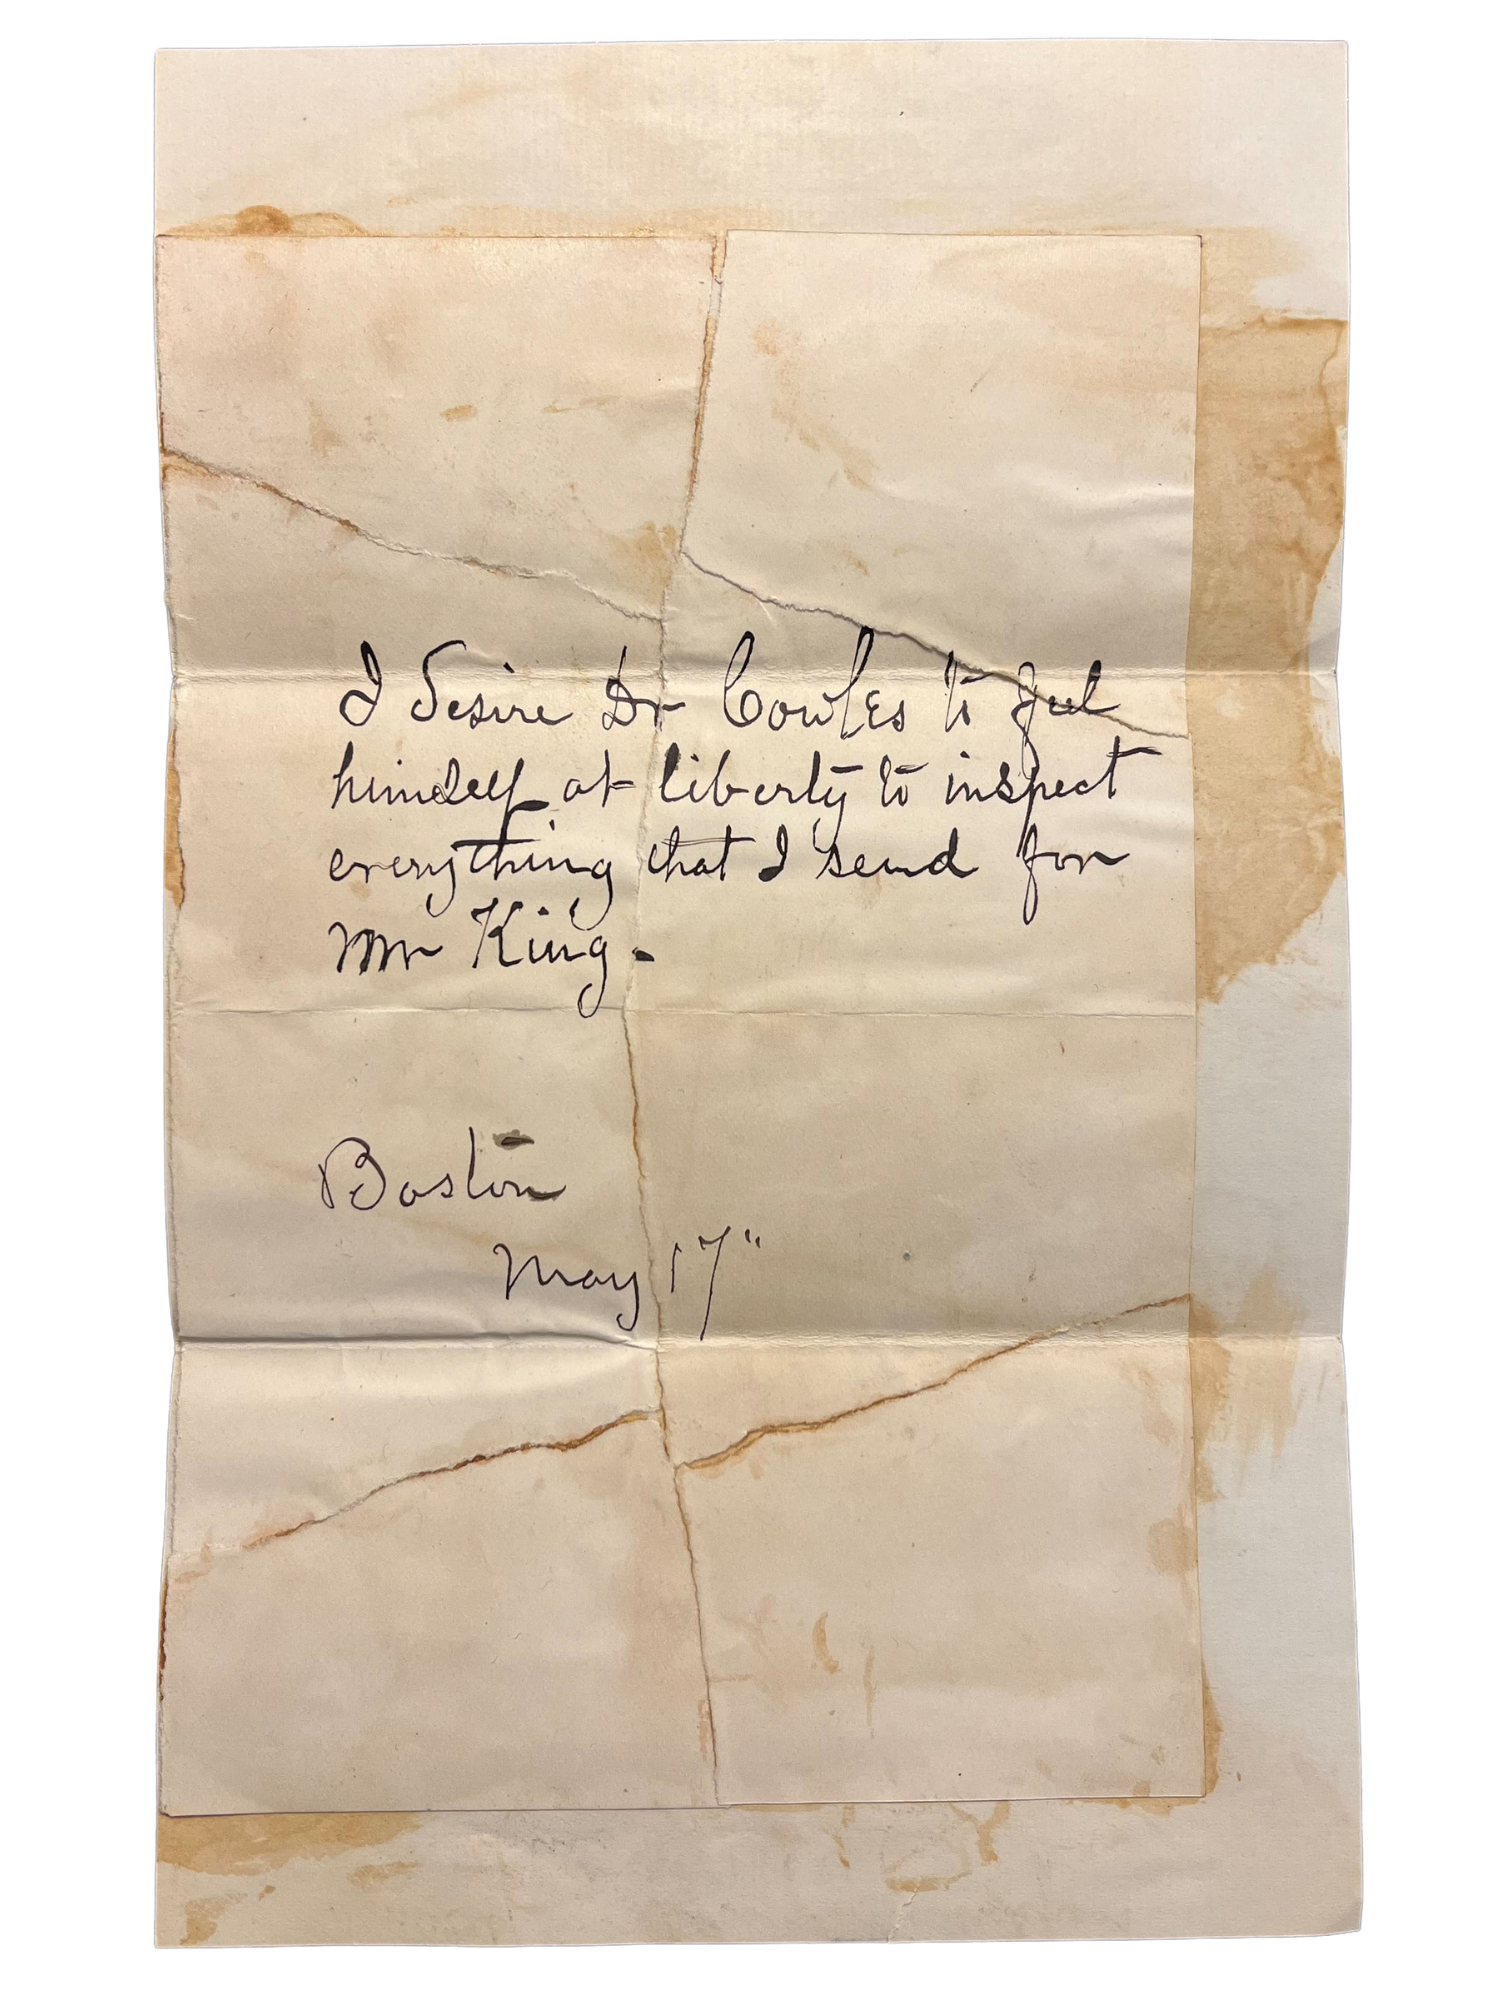 I desire Dr Cowles to feel
himself at liberty to inspect
everything that I send for
Mr King.
Boston
May 17"